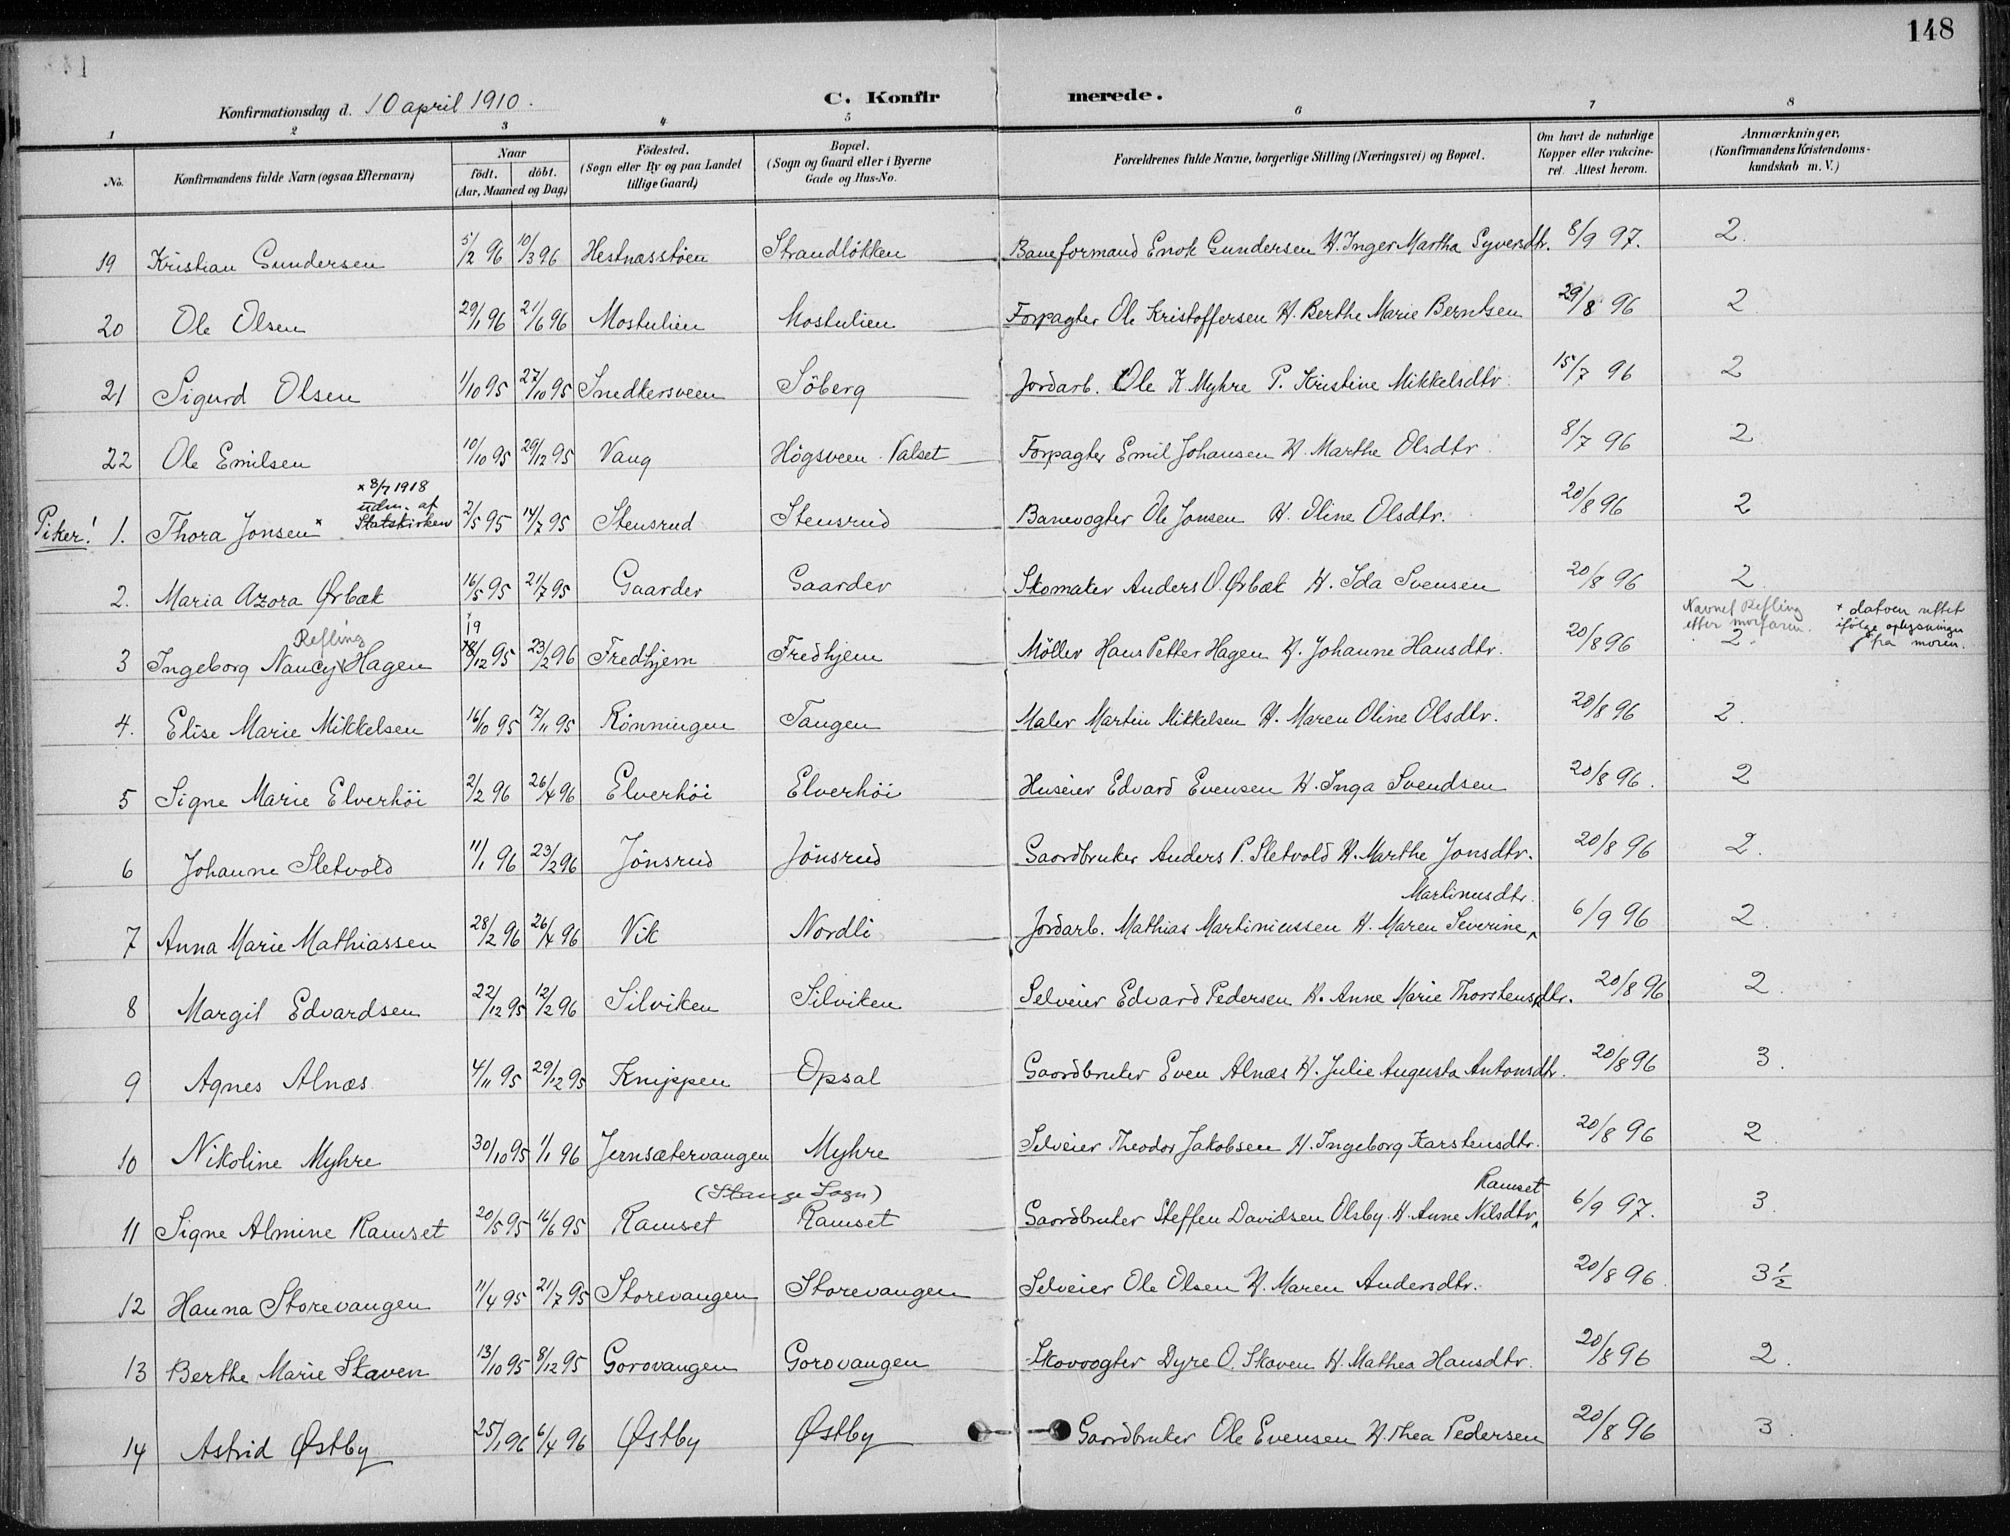 148
Konfirmationsdag d. 10 april 1910.
C. Konfirmerede.
1 2 3 4 5 6 7 8
No. Konfirmandens fulde Navn (ogsaa Efternavn) Naar födt. döbt. (Aar, Maaned og Dag) Födested. (Sogn eller By og paa Landet tillige Gaard) Bopæl. (Sogn og Gaard eller i Byerne Gade og Hus-No. Forældrenes fulde Navne, borgerlige Stilling (Næringsvei) og Bopæl. Om havt de naturlige Kopper eller vaccineret. Attest herom. Anmærkninger, (Konfirmandens Kristendomskundskab m. V.)
19 Kristian Gundersen 5/2 96 10/3 96 Hestnæsstøen Strandløkken Baneformand Enok Gundersen H. Inger Martha Syversdtr. 8/9 97. 2.
20 Ole Olsen 29/1 96 21/6 96 Mostulien Mostulien Forpagter Ole Kristoffersen H. Berthe Marie Berntsen 29/8 96 2
21 Sigurd Olsen 1/10 95 27/10 95 Snedkersveen Söberg Jordarb. Ole K Myhre P. Kristine Mikkelsdtr 15/7 96 2
22 Ole Emilsen 10/10 95 29/12 95 Vang Högsveen Valset Forpagter Emil Johansen H. Marthe Olsdtr. 8/7 96 2
x 3/7 1918 udm. af Statskirken
Piker! 1. Thora Jonsen x 2/5 95 14/7 95 Stensrud Stensrud Banevogter Ole Jonsen H. Oline Olsdtr. 20/8 96 2
2. Maria Azora Ørbæk 16/5 95 21/7 95 Gaarder Gaarder Skomaker Anders O. Ørbæk H. Ida Svensen 20/8 96 2
Refling 19 Navnet Refling efter morfaren. x datoen rettet ifølge oplysninger fra moren.
3 Ingeborg Nancy Hagen 18/12 95 23/2 96 Fredhjem Fredhjem Möller Hans Petter Hagen H. Johanne Hansdtr. 20/8 96 2.
4. Elise Marie Mikkelsen 16/10 95 17/11 95 Rönningen Tangen Maler Martin Mikkelsen H. Maren Oline Olsdtr. 20/8 96 2.
5 Signe Marie Elverhöi 2/2 96 26/4 96 Elverhöi Elverhöi Huseier Edvard Evensen H. Inga Svendsen 20/8 96. 2
6 Johanne Sletvold 11/1 96 23/2 96 Jönsrud Jönsrud Gaardbruker Anders P. Sletvold H. Marthe Jonsdtr. 20/8 96 2.
Martinusdtr.
7 Anna Marie Mathiassen 28/2 96 26/4 96 Vik Nordli Jordarb. Mathias Martiniussen H. Maren Severine 6/9 96 2.
8 Margit Edvardsen 22/12 95 12/2 96 Silviken Silviken Selveier Edvard Pedersen H. Anne Marie Thorstensdtr. 20/8 96 2.
9 Agnes Alnæs 4/11 95 29/12 95 Knippen Opsal Gaardbruker Even Alnæs H. Julie Augusta Antonsdtr. 20/8 96 3.
10 Nikoline Myhre 30/10 95 1/1 96 Jernsætervangen Myhre Selveier Theodor Jakobsen H. Ingeborg Karstensdtr. 20/8 96 2.
(Stange Sogn) Ramset
11 Signe Almine Ramset 20/5 95 16/6 95 Ramset Ramset Gaardbruker Steffen Davidsen Olsby H. Anne Nilsdtr. 6/9 97. 3.
12 Hanna Storevangen 11/4 95 21/7 95 Storevangen Storevangen Selveier Ole Olsen H. Maren Andersdtr. 20/8 96. 3 1/2
13 Berthe Marie Skaven 13/10 95 8/12 95 Gorovangen Gorovangen Skovvogter Dyre O. Skaven H. Mathea Hansdtr. 20/8 96 2.
14 Astrid Østby 25/1 96 6/4 96 Østby Østby Gaardbruker Ole Evensen H. Thea Pedersen 20/8 96 3.